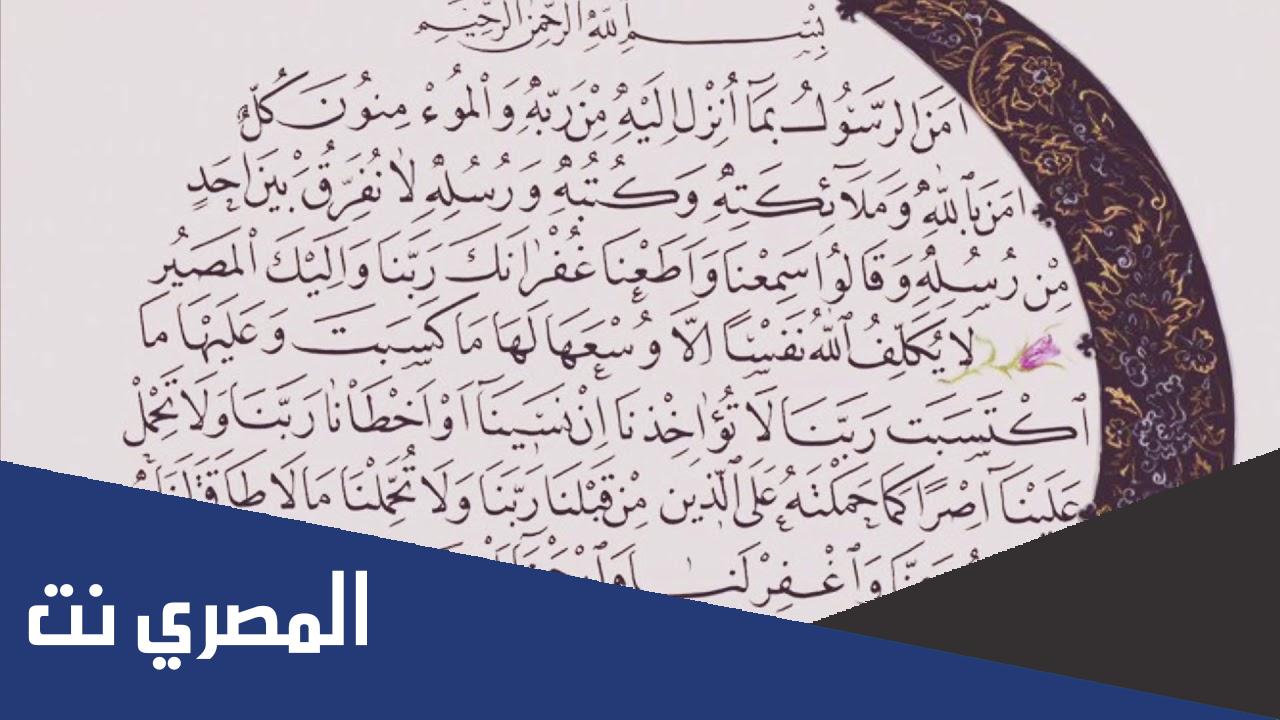 بِسْمِ اللّٰهِ الرَّحْمٰنِ الرَّحِيْمِ
اٰمَنَ الرَّسُوْلُ بِمَآ اُنْزِلَ اِلَيْهِ مِنْ رَبِّهٖ وَالْمُوءْمِنُونَ كُلٌّ
اٰمَنَ بِاللّٰهِ وَمَلَآئِكَتِهٖ وَكُتُبِهٖ وَرُسُلِهٖ لَا نُفَرِّقُ بَيْنَ اَحَدٍ
مِنْ رُسُلِهٖ وَقَالُوا سَمِعْنَا وَاَطَعْنَا غُفْرَانَكَ رَبَّنَا وَاِلَيْكَ الْمَصِيْرُ
لَا يُكَلِّفُ اللّٰهُ نَفْسًا اِلَّا وُسْعَهَا لَهَا مَا كَسَبَتْ وَعَلَيْهَا مَا
اكْتَسَبَتْ رَبَّنَا لَا تُؤَاخِذْنَا اِنْ نَسِيْنَآ اَوْ اَخْطَاْنَا رَبَّنَا وَلَا تَحْمِلْ
عَلَيْنَآ اِصْرًا كَمَا حَمَلْتَهُ عَلَى الَّذِيْنَ مِنْ قَبْلِنَا رَبَّنَا وَلَا تُحَمِّلْنَا مَا لَا طَاقَةَ لَنَا
وَاغْفِرْ لَنَا
المصري نت